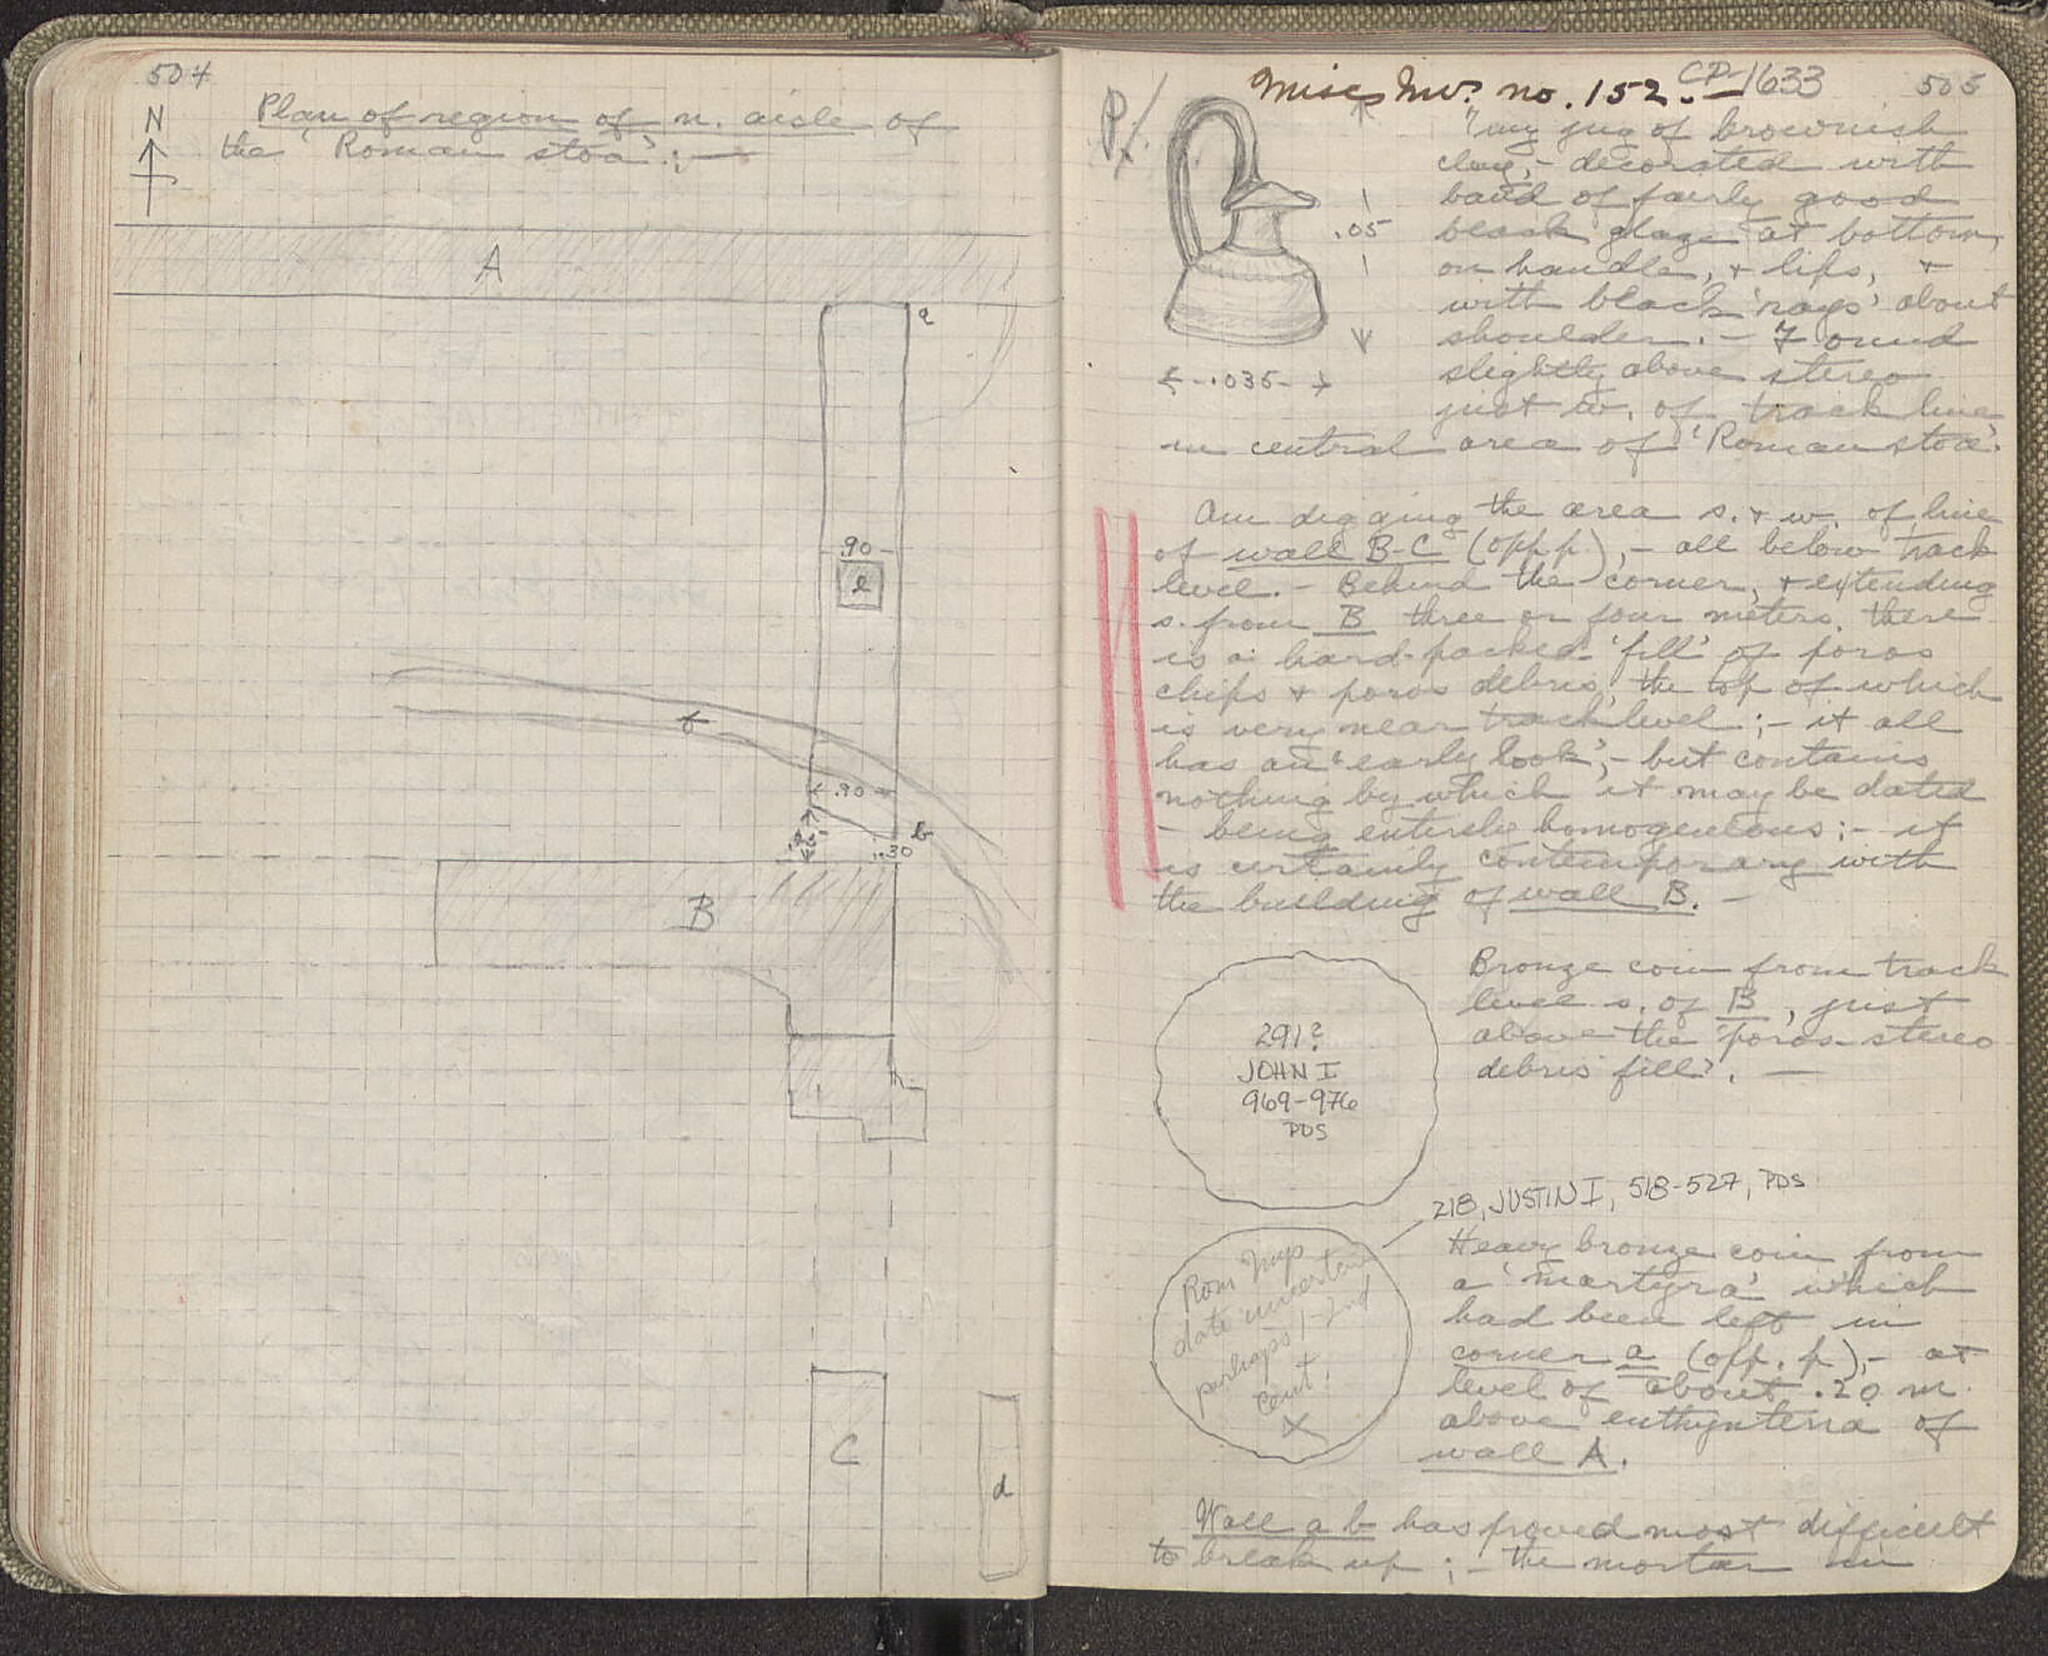 504
Plan of region of n. aisle of
the 'Roman stoa':—
N
A
a
.90
e
f
.90
b
.30
B
C
d
505
P/
Misc Inv. no. 152.— CP-1633
Tiny jug of brownish
clay,- decorated with
band of fairly good
black glaze at bottom,
.05
on handle, + lips, +
with black 'rays' about
shoulder. – Found
slightly above stereo
.035
just w. of track line
in central area of 'Roman stoa'.
Am digging the area s. + w. of line
of wall B-C (opp p.),- all below track
level. – Behind the corner, + extending
s. from B three or four meters, there
is a hard-packed 'fill' of poros
chips + poros debris, the top of which
is very near track level;- it all
has an 'early look',- but contains
nothing by which it may be dated
– being entirely homogeneous:- it
is certainly contemporary with
the building of wall B. –
Bronze coin from track
level s. of B, just
above the 'poros-stereo
debris fill'. —
291?
JOHN I
969-976
PDS
218, JUSTIN I, 518-527, PDS
Heavy bronze coin from
a 'martyra' which
had been left in
corner a (opp. p),- at
level of about .20 m.
above euthynteria of
wall A.
Rom Imp
date uncertain
perhaps 1-2nd
cent.
X
Wall a b has proved most difficult
to break up;- the mortar in